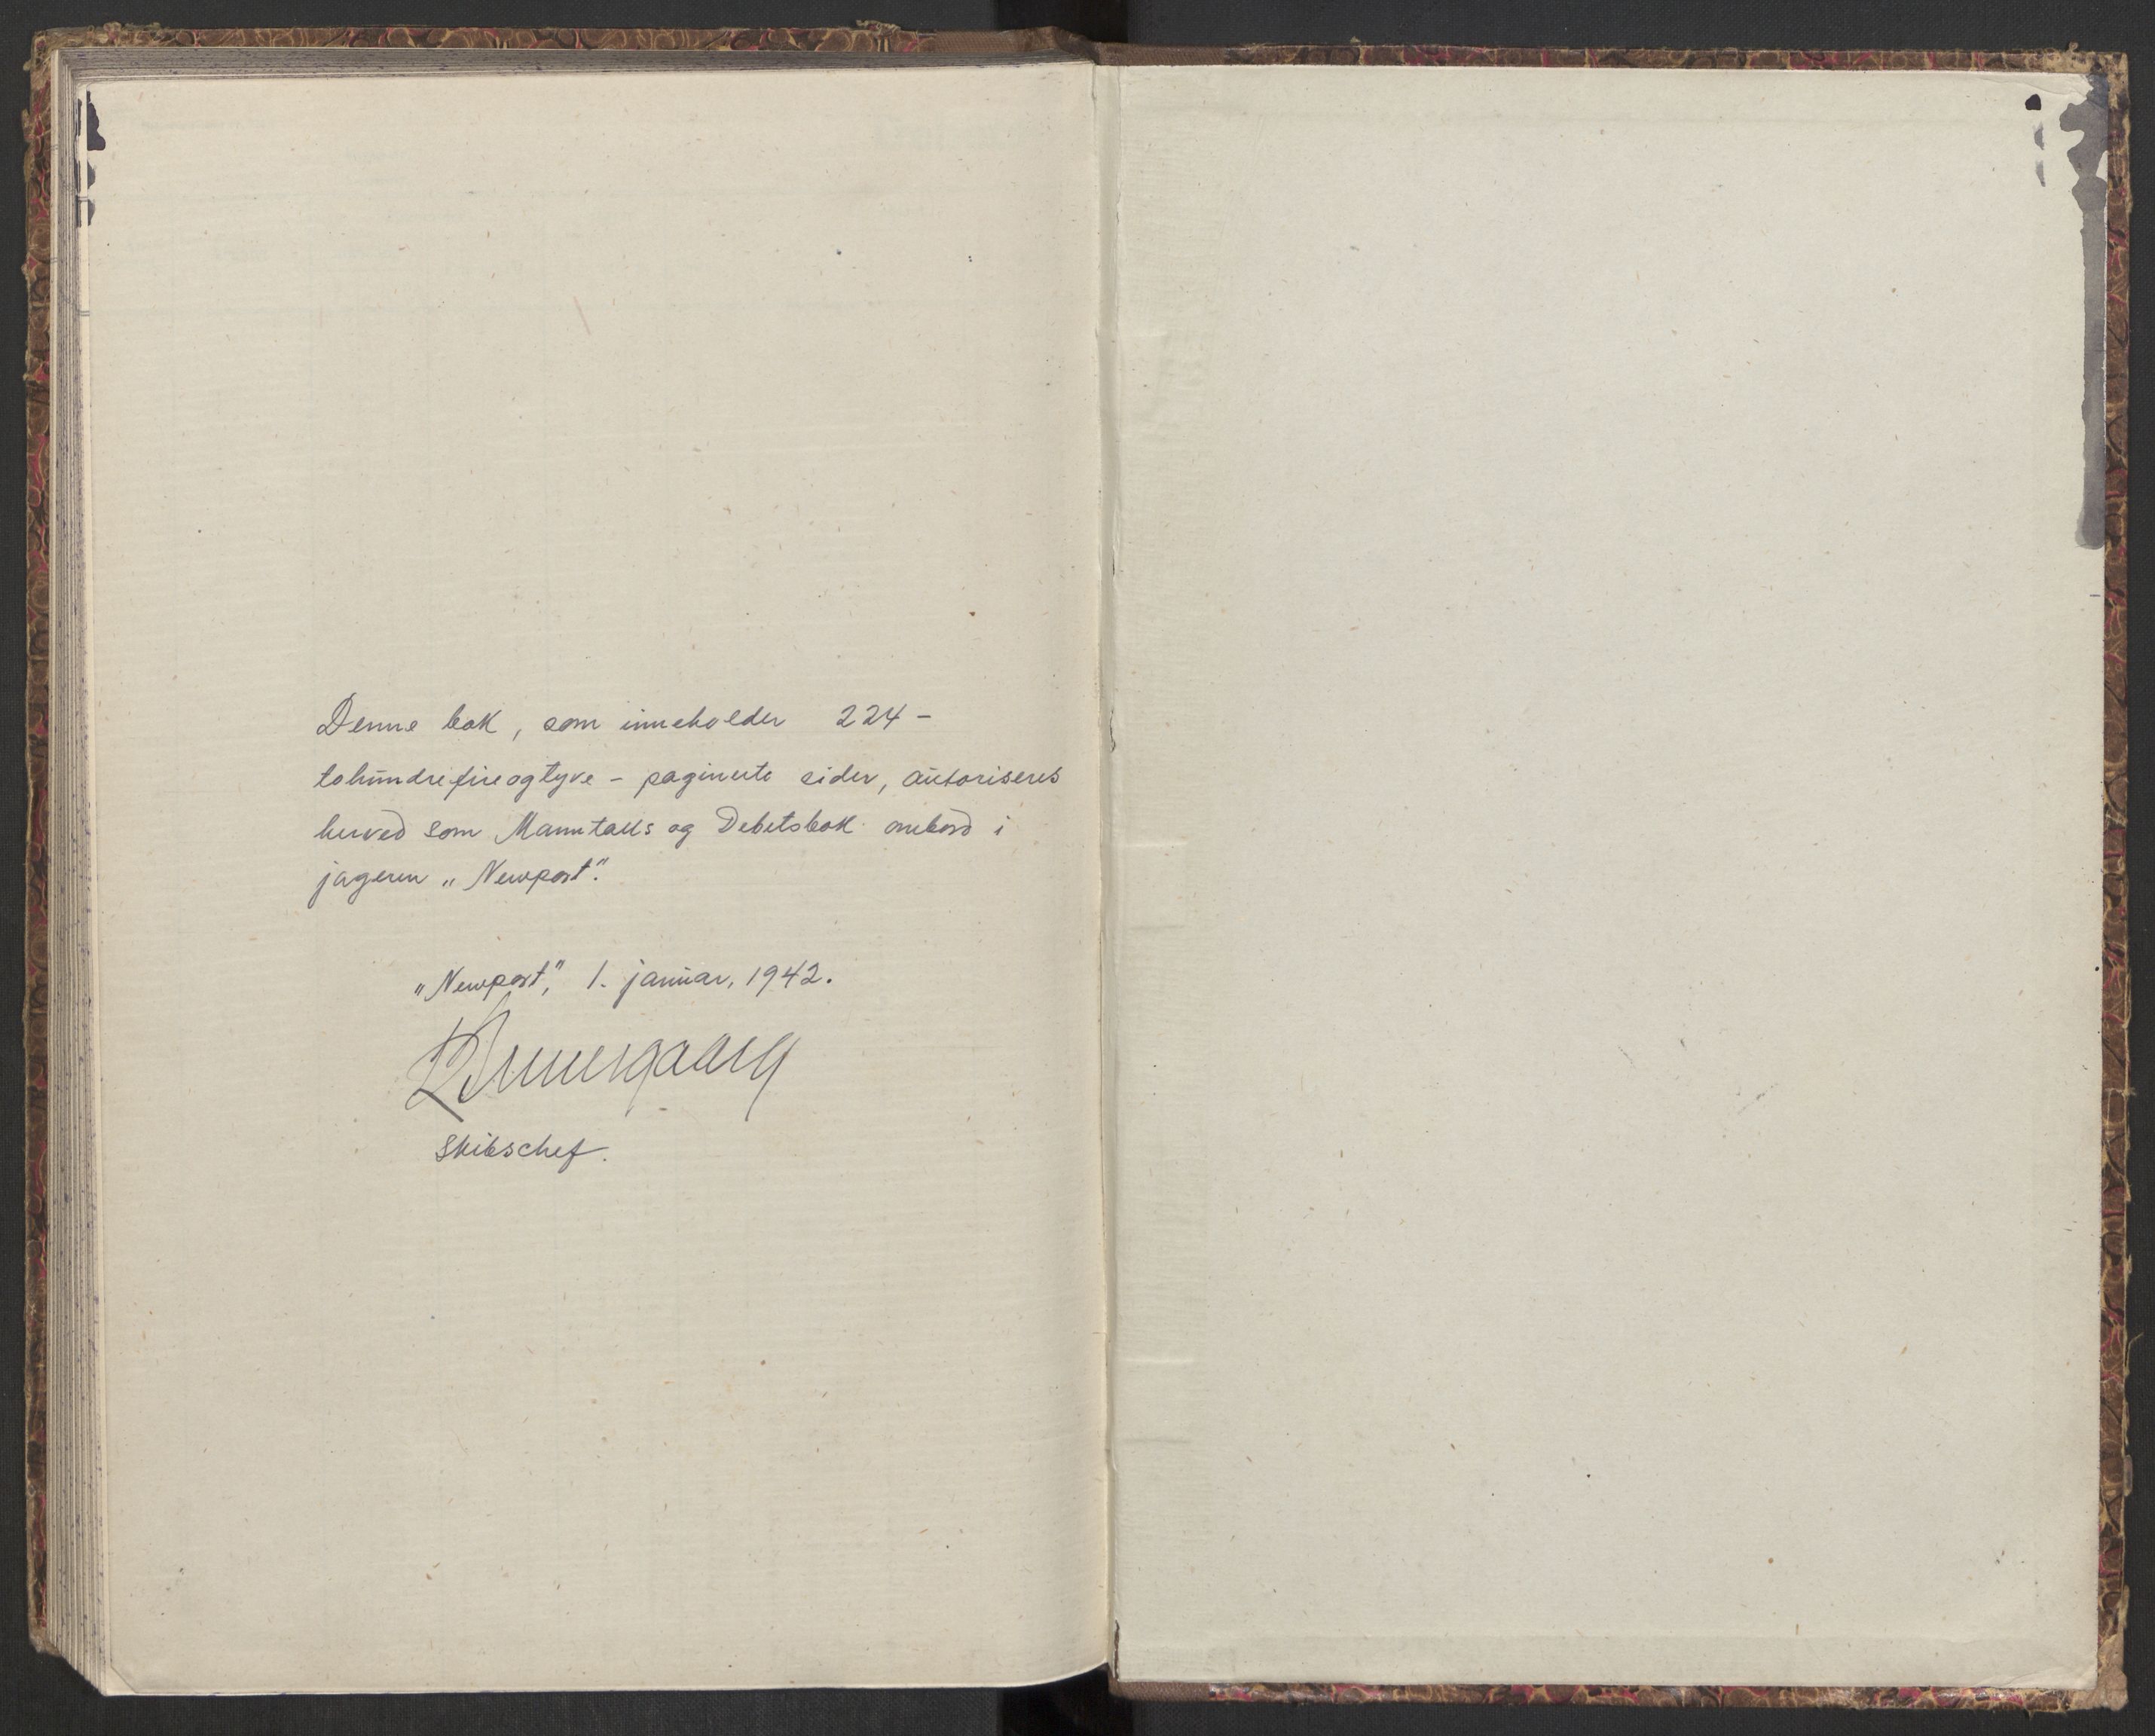 Denne bok, som inneholder 224 –
tohundrefireogtyve – paginerte sider, autoriseres
herved som Manntalls og Debetsbok ombord i
jageren „Newport".
„Newport", 1. januar, 1942.
Skibschef.